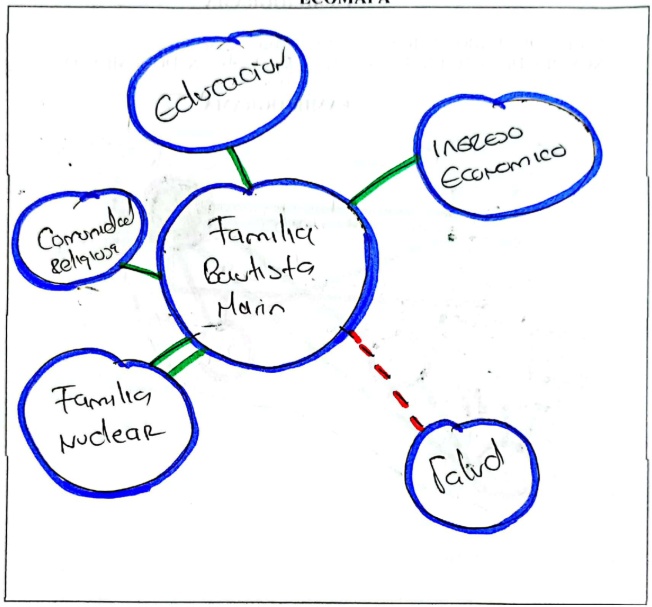 ECOMAPA
Educación
INGRESO
ECONOMICO
Comunidad
Religiosa
Familia
Bautista
Marin
Familia
Nuclear
Salud